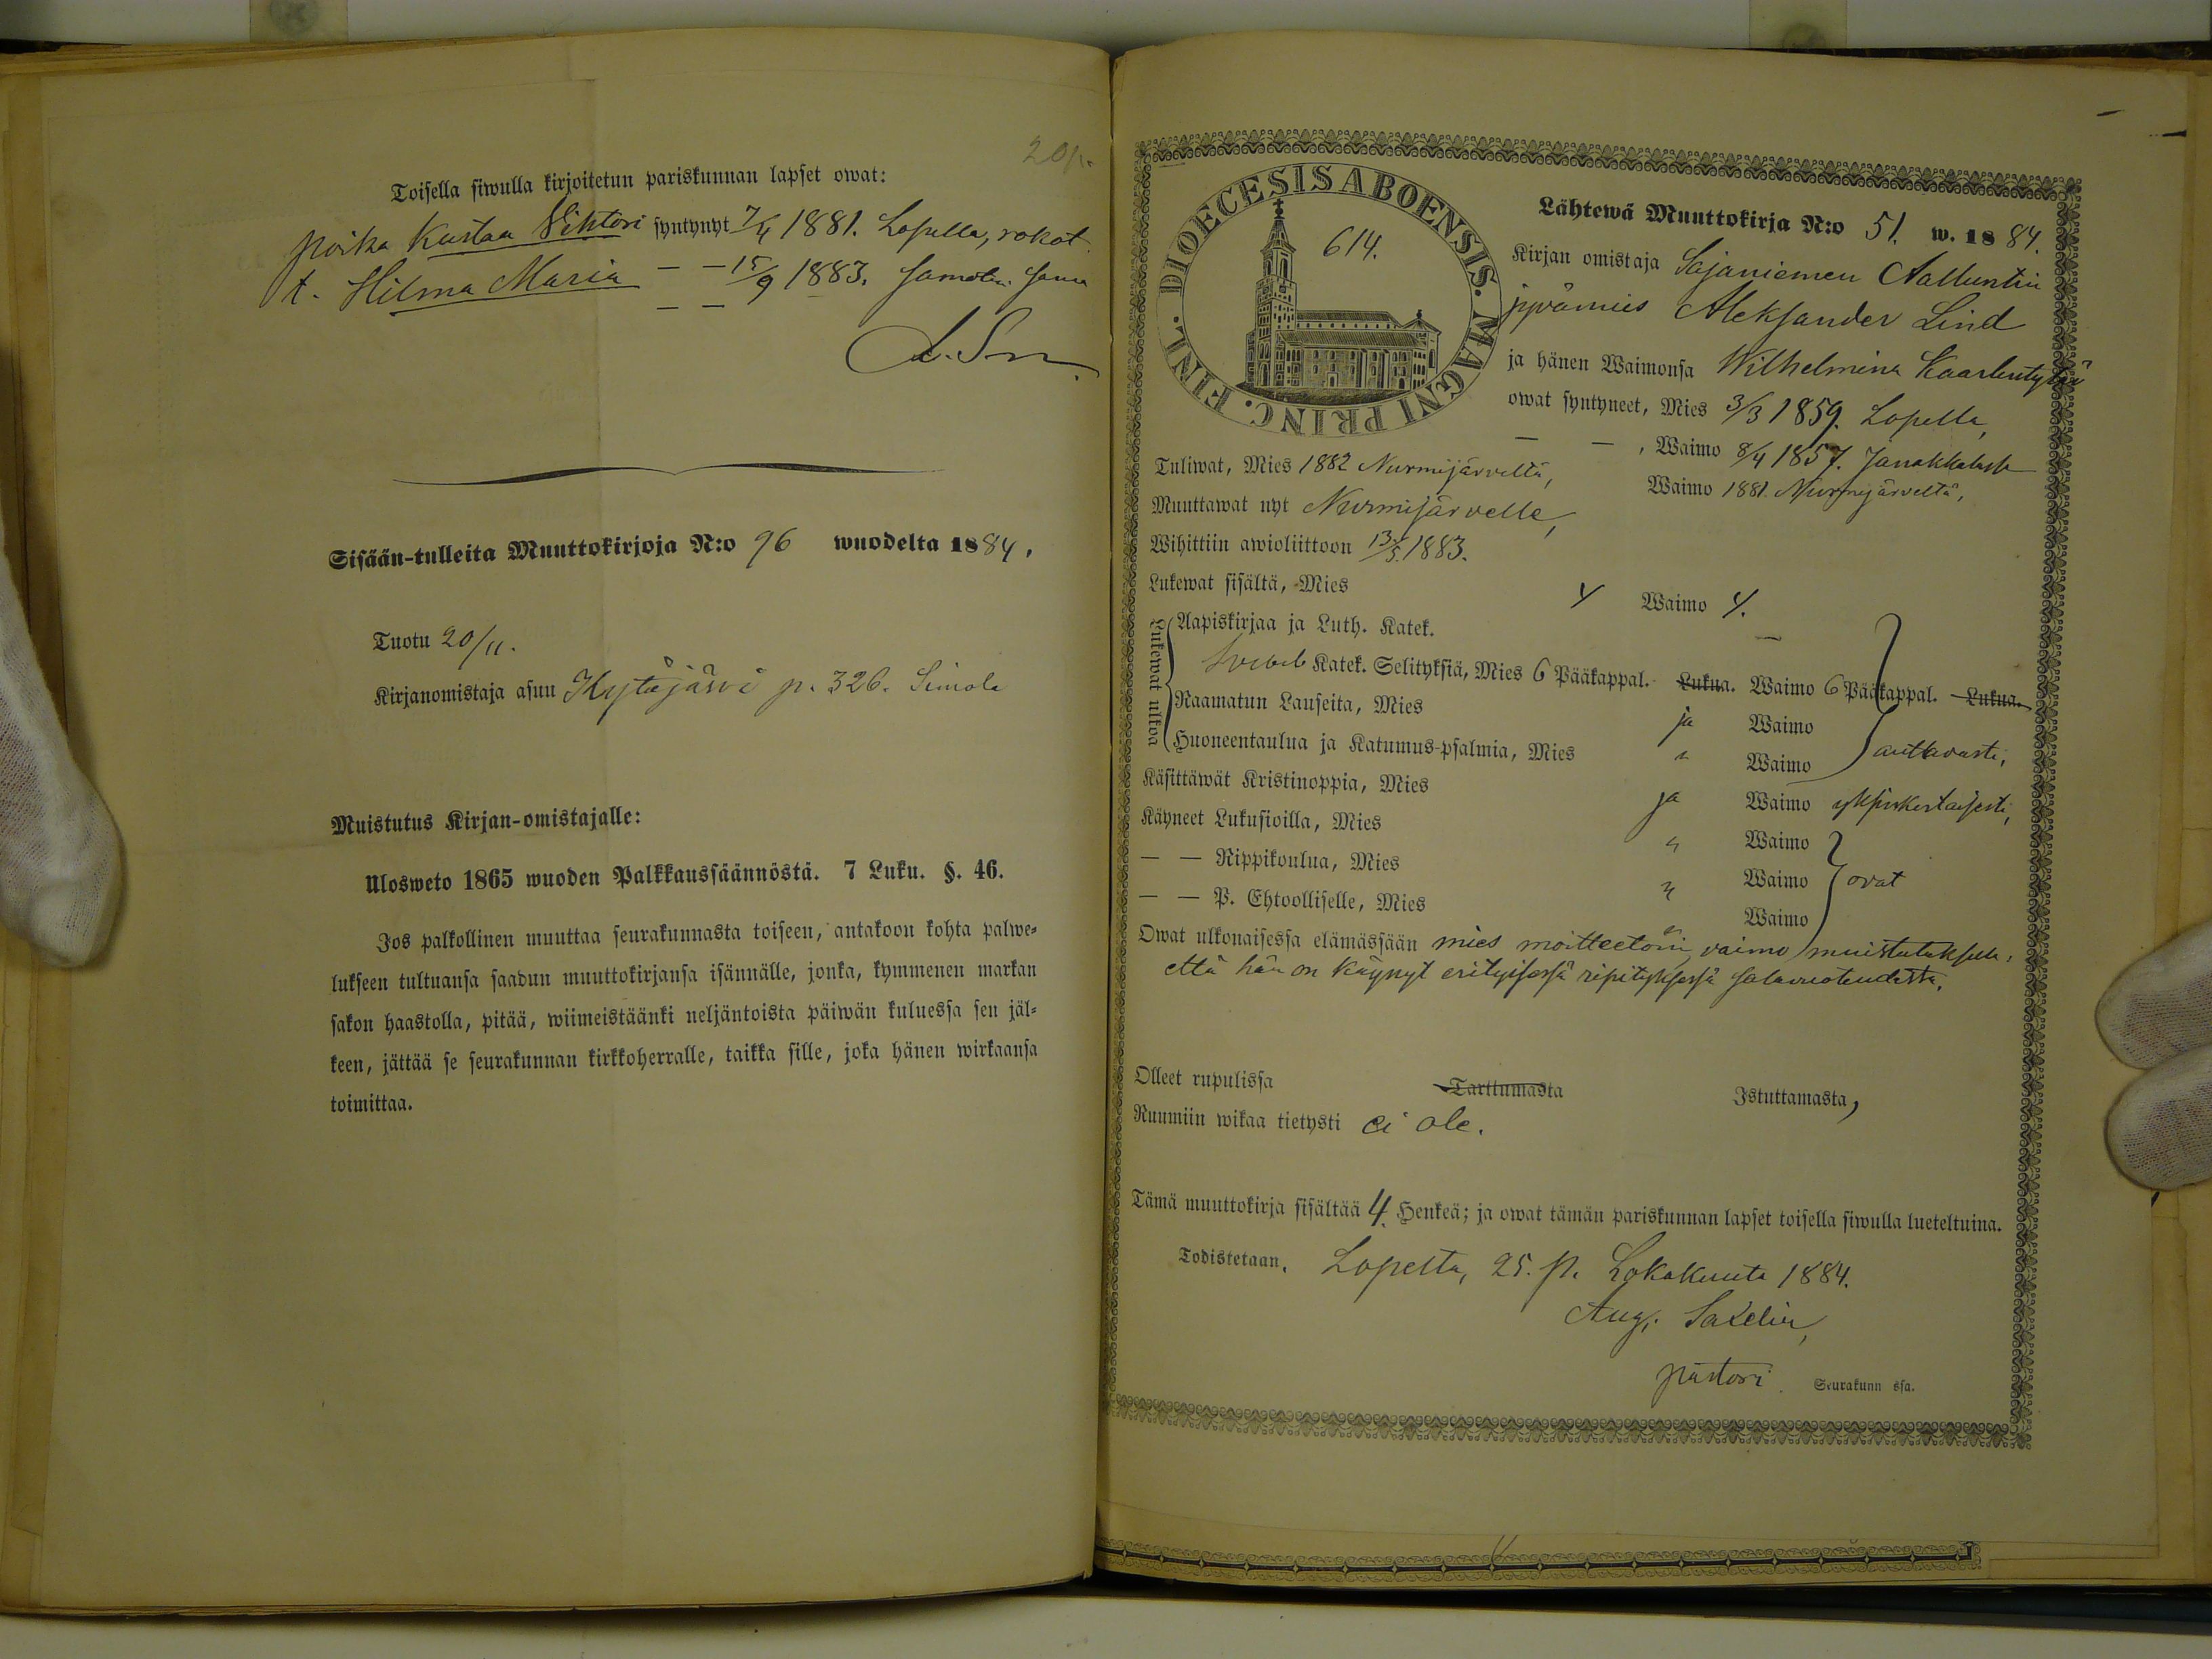 20/11
Toisella siwulla kirjoitetun pariskunnan lapset owat:
poika Kustaa Vihtori syntynyt 7/4 1881. Lopella, rokot.
t. Hilma Maria — — 15/9 1883. samoten sama
— —
Sisään-tulleita Muuttokirjoja N:o 96 wuodelta 1884.
Tuotu 20/11.
Kirjanomistaja asuu Kytäjärvi p. 326. Simola
Muistutus Kirjan-omistajalle:
Ulosweto 1865 wuoden Palkkaussäännöstä. 7 Luku. §. 46.
Jos palkollinen muuttaa seurakunnasta toiseen, antakoon kohta palwe-
lukseen tultuansa saadun muuttokirjansa isännälle, jonka, kymmenen markan
sakon haastolla, pitää, wiimeistäänki neljäntoista päiwän kuluessa sen jäl-
keen, jättää se seurakunnan kirkkoherralle, taikka sille, joka hänen wirkaansa
toimittaa.
DIOECESIS ABOENSIS. MAGNI PRINC. FINL.
614.
Lähtewä Muuttokirja N:o 51. w. 1884.
Kirjan omistaja Sajaniemen
Aleksander Lind
ja hänen Waimonsa Wilhelmina Kaarlentytär
owat syntyneet, Mies 3/3 1859. Lopella,
— — , Waimo 8/4 1857. Janakkalassa
Tuliwat, Mies 1882 Nurmijärveltä, Waimo 1881. Nurmijärveltä,
Muuttawat nyt Nurmijärvelle,
Wihittiin awioliittoon 13/5 1883.
Lukewat sisältä, Mies 4 Waimo 4.
Lukewat ulkoa
Aapiskirjaa ja Luth. Katek. —
Katek. Selityksiä, Mies 6 Pääkappal. Lukua. Waimo 6 Pääkappal. Lukua.
Raamatun Lauseita, Mies ja Waimo
Huoneentaulua ja Katumus-psalmia, Mies " Waimo auttavasti,
Käsittäwät Kristinoppia, Mies ja Waimo yksinkertaisesti,
Käyneet Lukusioilla, Mies " Waimo
— — Rippikoulua, Mies " Waimo ovat
— — P. Ehtoolliselle, Mies " Waimo
Owat ulkonaisessa elämässään mies moitteetoin, vaimo muistutuksella,
että hän on käynyt erityisessä ripityksessä salavuoteudesta.
Olleet rupulissa Tarttumasta Istuttamasta,
Ruumiin wikaa tietysti ei ole.
Tämä muuttokirja sisältää 4. Henkeä; ja owat tämän pariskunnan lapset toisella siwulla lueteltuina.
Todistetaan, Lopelta, 25. p. Lokakuuta 1884.
Aug.
pastori. Seurakunn ssa.